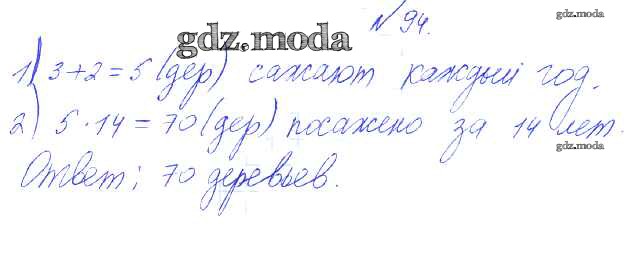 № 94.
gdz.moda
gdz.moda
1) 3+2=5 (дер) сажают каждый год.
2) 5·14=70 (дер) посажено за 14 лет.
gdz.moda
Ответ: 70 деревьев.